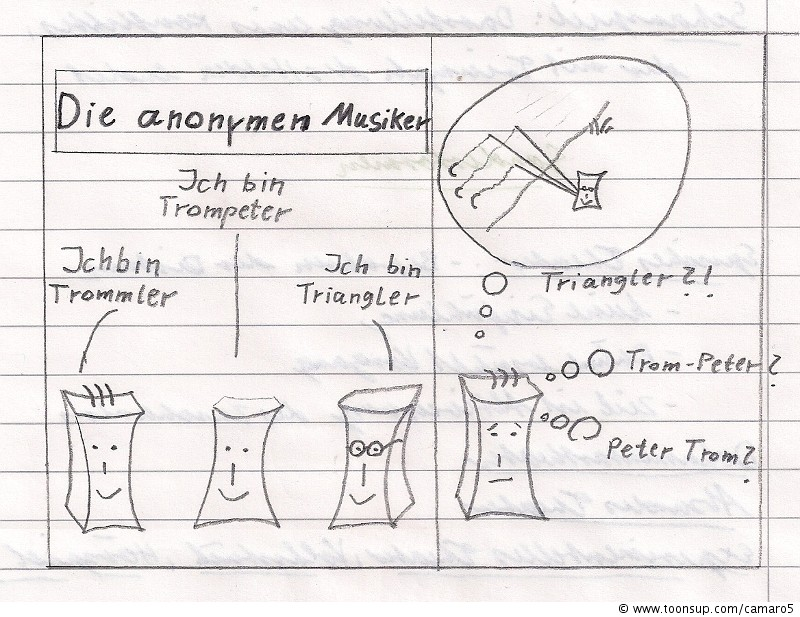 Die anonymen Musiker
Ich bin
Trompeter
Ichbin
Trommler
Ich bin
Triangler
Triangler?!
Trom-Peter?
Peter Trom?
© www.toonsup.com/camaro5